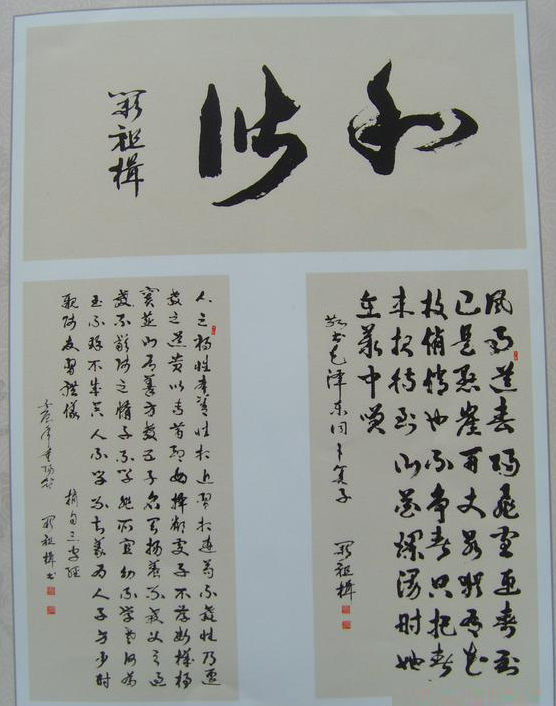 和谐
祖楫
风雨送春归飛雪迎春到
已是悬崖百丈冰犹有花
枝俏俏也不争春只把春
来报待到山花烂漫时她
在丛中笑
敬书毛泽东同志卜算子
祖楫
人之初性本善性相近習相远苟不教性乃迁
教之道贵以专昔孟母择邻处子不学断機杼
窦燕山有義方教五子名俱扬养不教父之过
教不严师之惰子不学非所宜幼不学老何为
玉不琢不成器人不学不知義为人子方少时
親师友習禮儀
摘句三字经
祖楫书